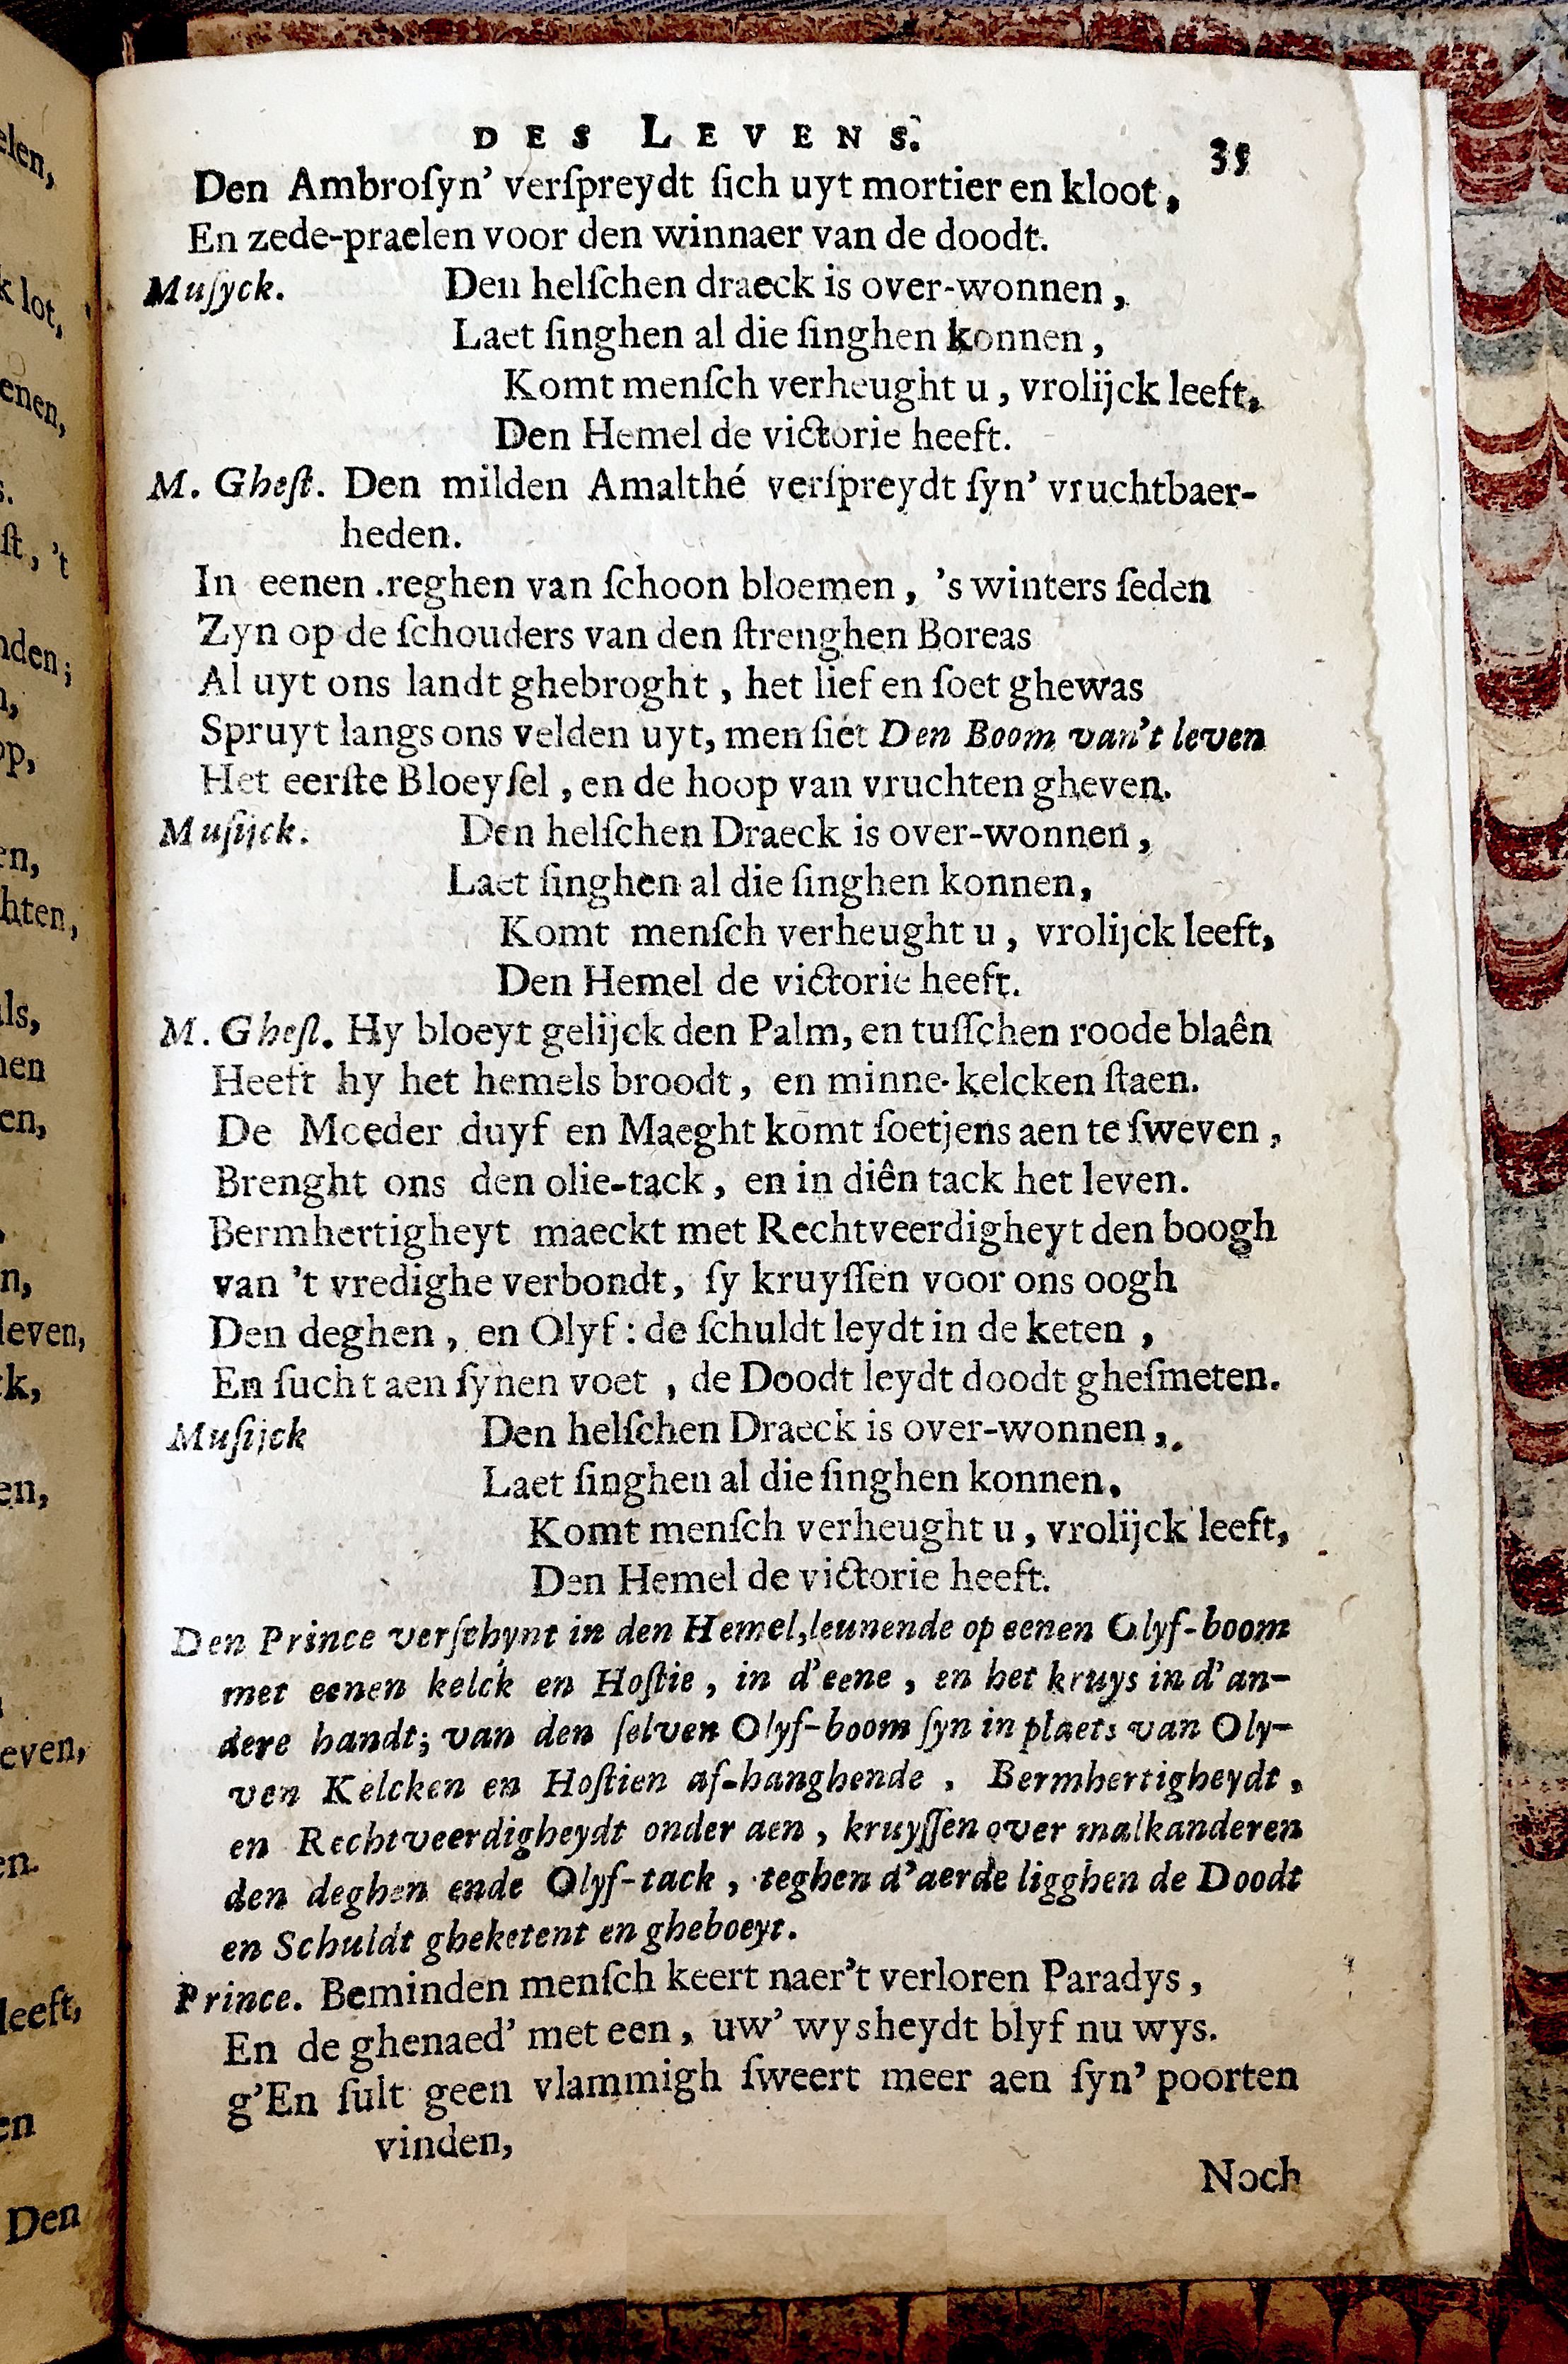 DES LEVENS. 35
Den Ambroſyn' verſpreydt ſich uyt mortier en kloot,
En zede-praelen voor den winnaer van de doodt.
Muſyck. Den helſchen draeck is over-wonnen,
Laet ſinghen al die ſinghen konnen,
Komt menſch verheught u, vrolijck leeft,
Den Hemel de victorie heeft.
M. Gheſt. Den milden Amalthé verſpreydt ſyn' vruchtbaer-
heden.
In eenen reghen van ſchoon bloemen, 's winters ſeden
Zyn op de ſchouders van den ſtrenghen Boreas
Al uyt ons landt ghebroght, het lief en ſoet ghewas
Spruyt langs ons velden uyt, men ſiet Den Boom van't leven
Het eerſte Bloeyſel, en de hoop van vruchten gheven.
Muſijck. Den helſchen Draeck is over-wonnen,
Laet ſinghen al die ſinghen konnen,
Komt menſch verheught u, vrolijck leeft,
Den Hemel de victorie heeft.
M. Gheſt. Hy bloeyt gelijck den Palm, en tuſſchen roode blaên
Heeft hy het hemels broodt, en minne-kelcken ſtaen.
De Moeder duyf en Maeght komt ſoetjens aen te ſweven,
Brenght ons den olie-tack, en in diên tack het leven.
Bermhertigheyt maeckt met Rechtveerdigheyt den boogh
van 't vredighe verbondt, ſy kruyſſen voor ons oogh
Den deghen, en Olyf: de ſchuldt leydt in de keten,
En ſucht aen ſynen voet, de Doodt leydt doodt gheſmeten.
Muſijck Den helſchen Draeck is over-wonnen,
Laet ſinghen al die ſinghen konnen.
Komt menſch verheught u, vrolijck leeft,
Den Hemel de victorie heeft.
Den Prince verſchynt in den Hemel, leunende op eenen Olyf-boom
met eenen kelck en Hoſtie, in d'eene, en het kruys in d'an-
dere handt; van den ſelven Olyf-boom ſyn in plaets van Oly-
ven Kelcken en Hoſtien af-hanghende, Bermhertigheydt,
en Rechtveerdigheydt onder aen, kruyſſen over malkanderen
den deghen ende Olyf-tack, teghen d'aerde ligghen de Doodt
en Schuldt gheketent en gheboeyt.
Prince. Beminden menſch keert naer't verloren Paradys,
En de ghenaed' met een, uw' wysheydt blyf nu wys.
g'En ſult geen vlammigh ſweert meer aen ſyn' poorten
vinden,
Noch